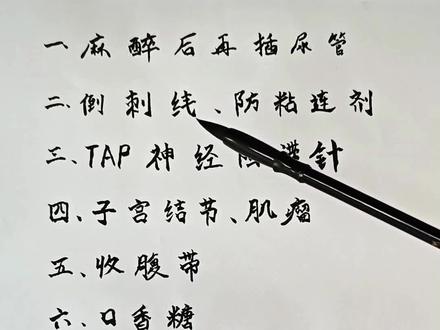 一、麻醉后再插尿管
二、倒刺线、防粘连剂
三、TAP神经阻滞針
四、子宫结节、肌瘤
五、收腹带
六、口香糖